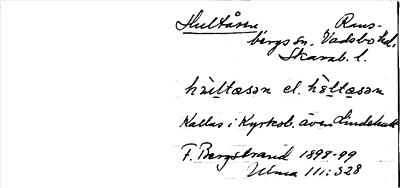 Hultåsen, Rans-
bergs sn. Vadsbo hd.
Skarab. l.
hɯltåsən el. hɵltåsən
Kallas i Kyrkob. även Lindehult
F. Bergstrand 1898-99
Ulma 111:328